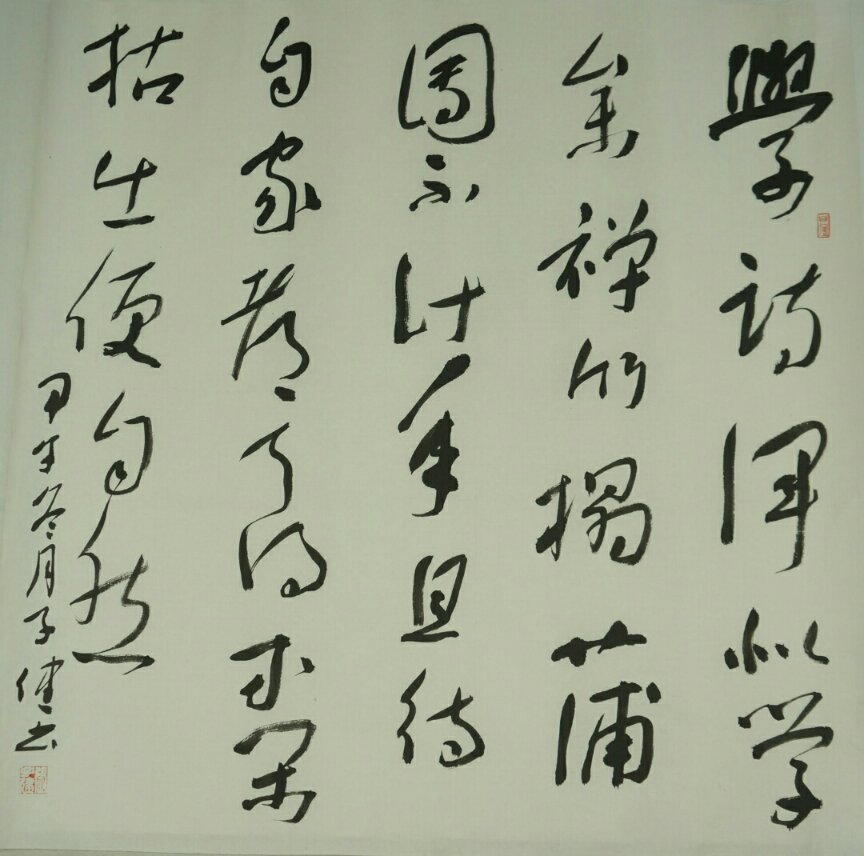 學詩渾似學
參禪竹榻蒲
團不計年直待
自家都了得等閑
拈出便自然
甲午冬月子健书